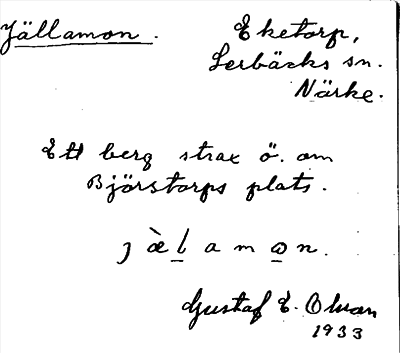 Jällamon.
Eketorp,
Lerbäcks sn.
Närke.
Ett berg strax ö. om
Björstorps plats.
j ὰ l a m ω n.
Gustaf E. Olsson
1933